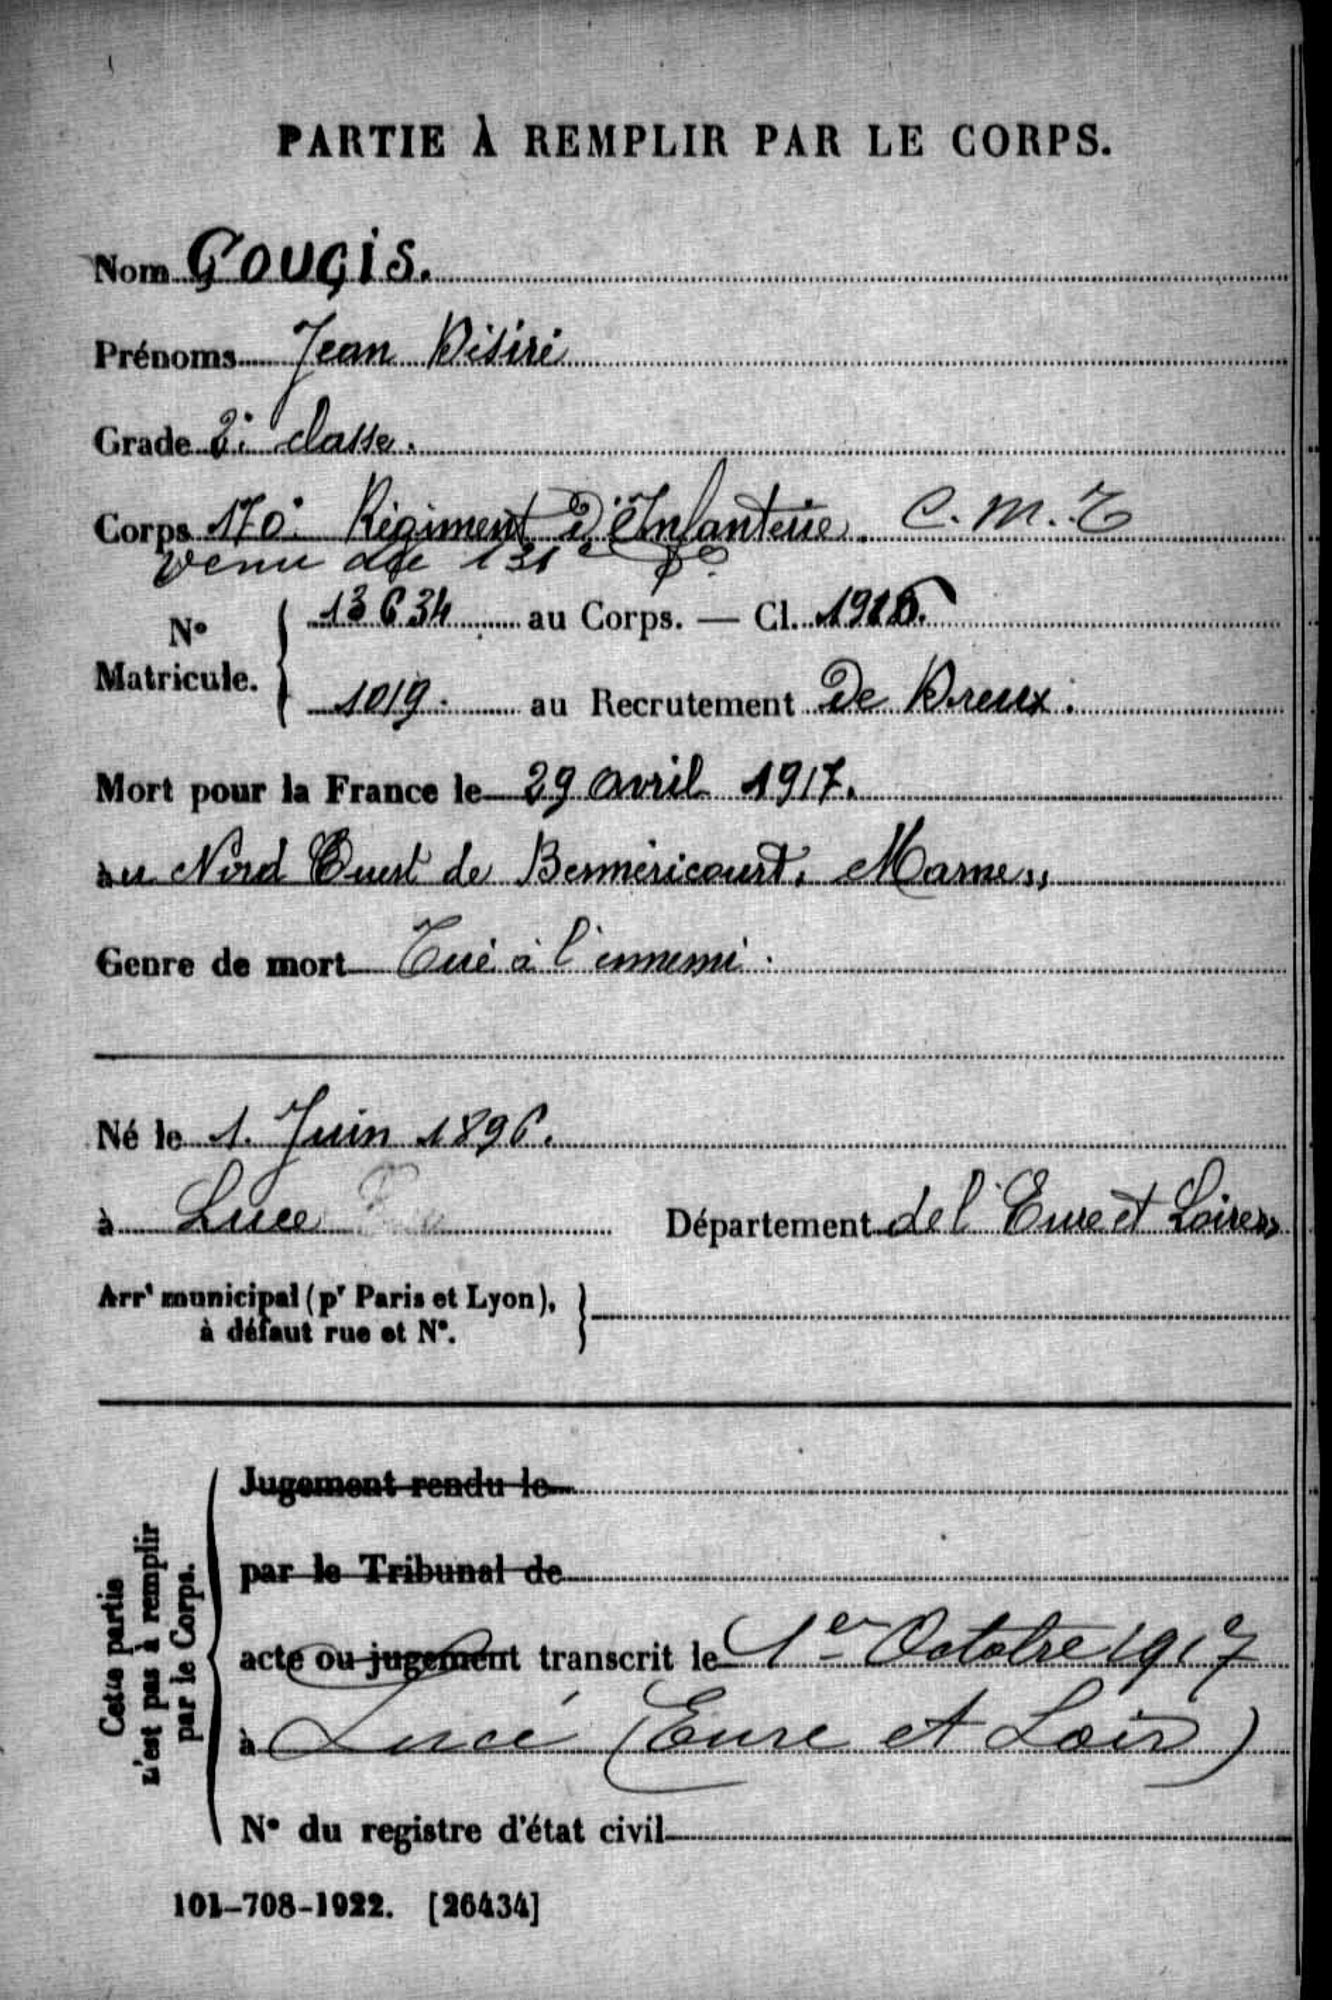 PARTIE À REMPLIR PAR LE CORPS.
Nom Gougis.
Prénoms Jean Désiré
Grade 2e classe.
Corps 170e Régiment d'Infanterie. C. M. 
venu du 131e do
No Matricule. 13634 au Corps. — Cl. 1916.
1019. au Recrutement De Dreux.
Mort pour la France le 29 avril 1917.
au Nord Ouest de Berméricourt. Marne "
Genre de mort Tué à l'ennemi.
Né le 1. Juin 1896.
à Luce Département de l'Eure et Loire "
Arrt municipal (pr Paris et Lyon),
à défaut rue et No.
Cette partie
n'est pas à remplir
par le Corps.
Jugement rendu le
par le Tribunal de
acte ou jugement transcrit le 1er Octobre 1917
à Lucé (Eure et Loir)
No du registre d'état civil
101-708-1922. [26434]